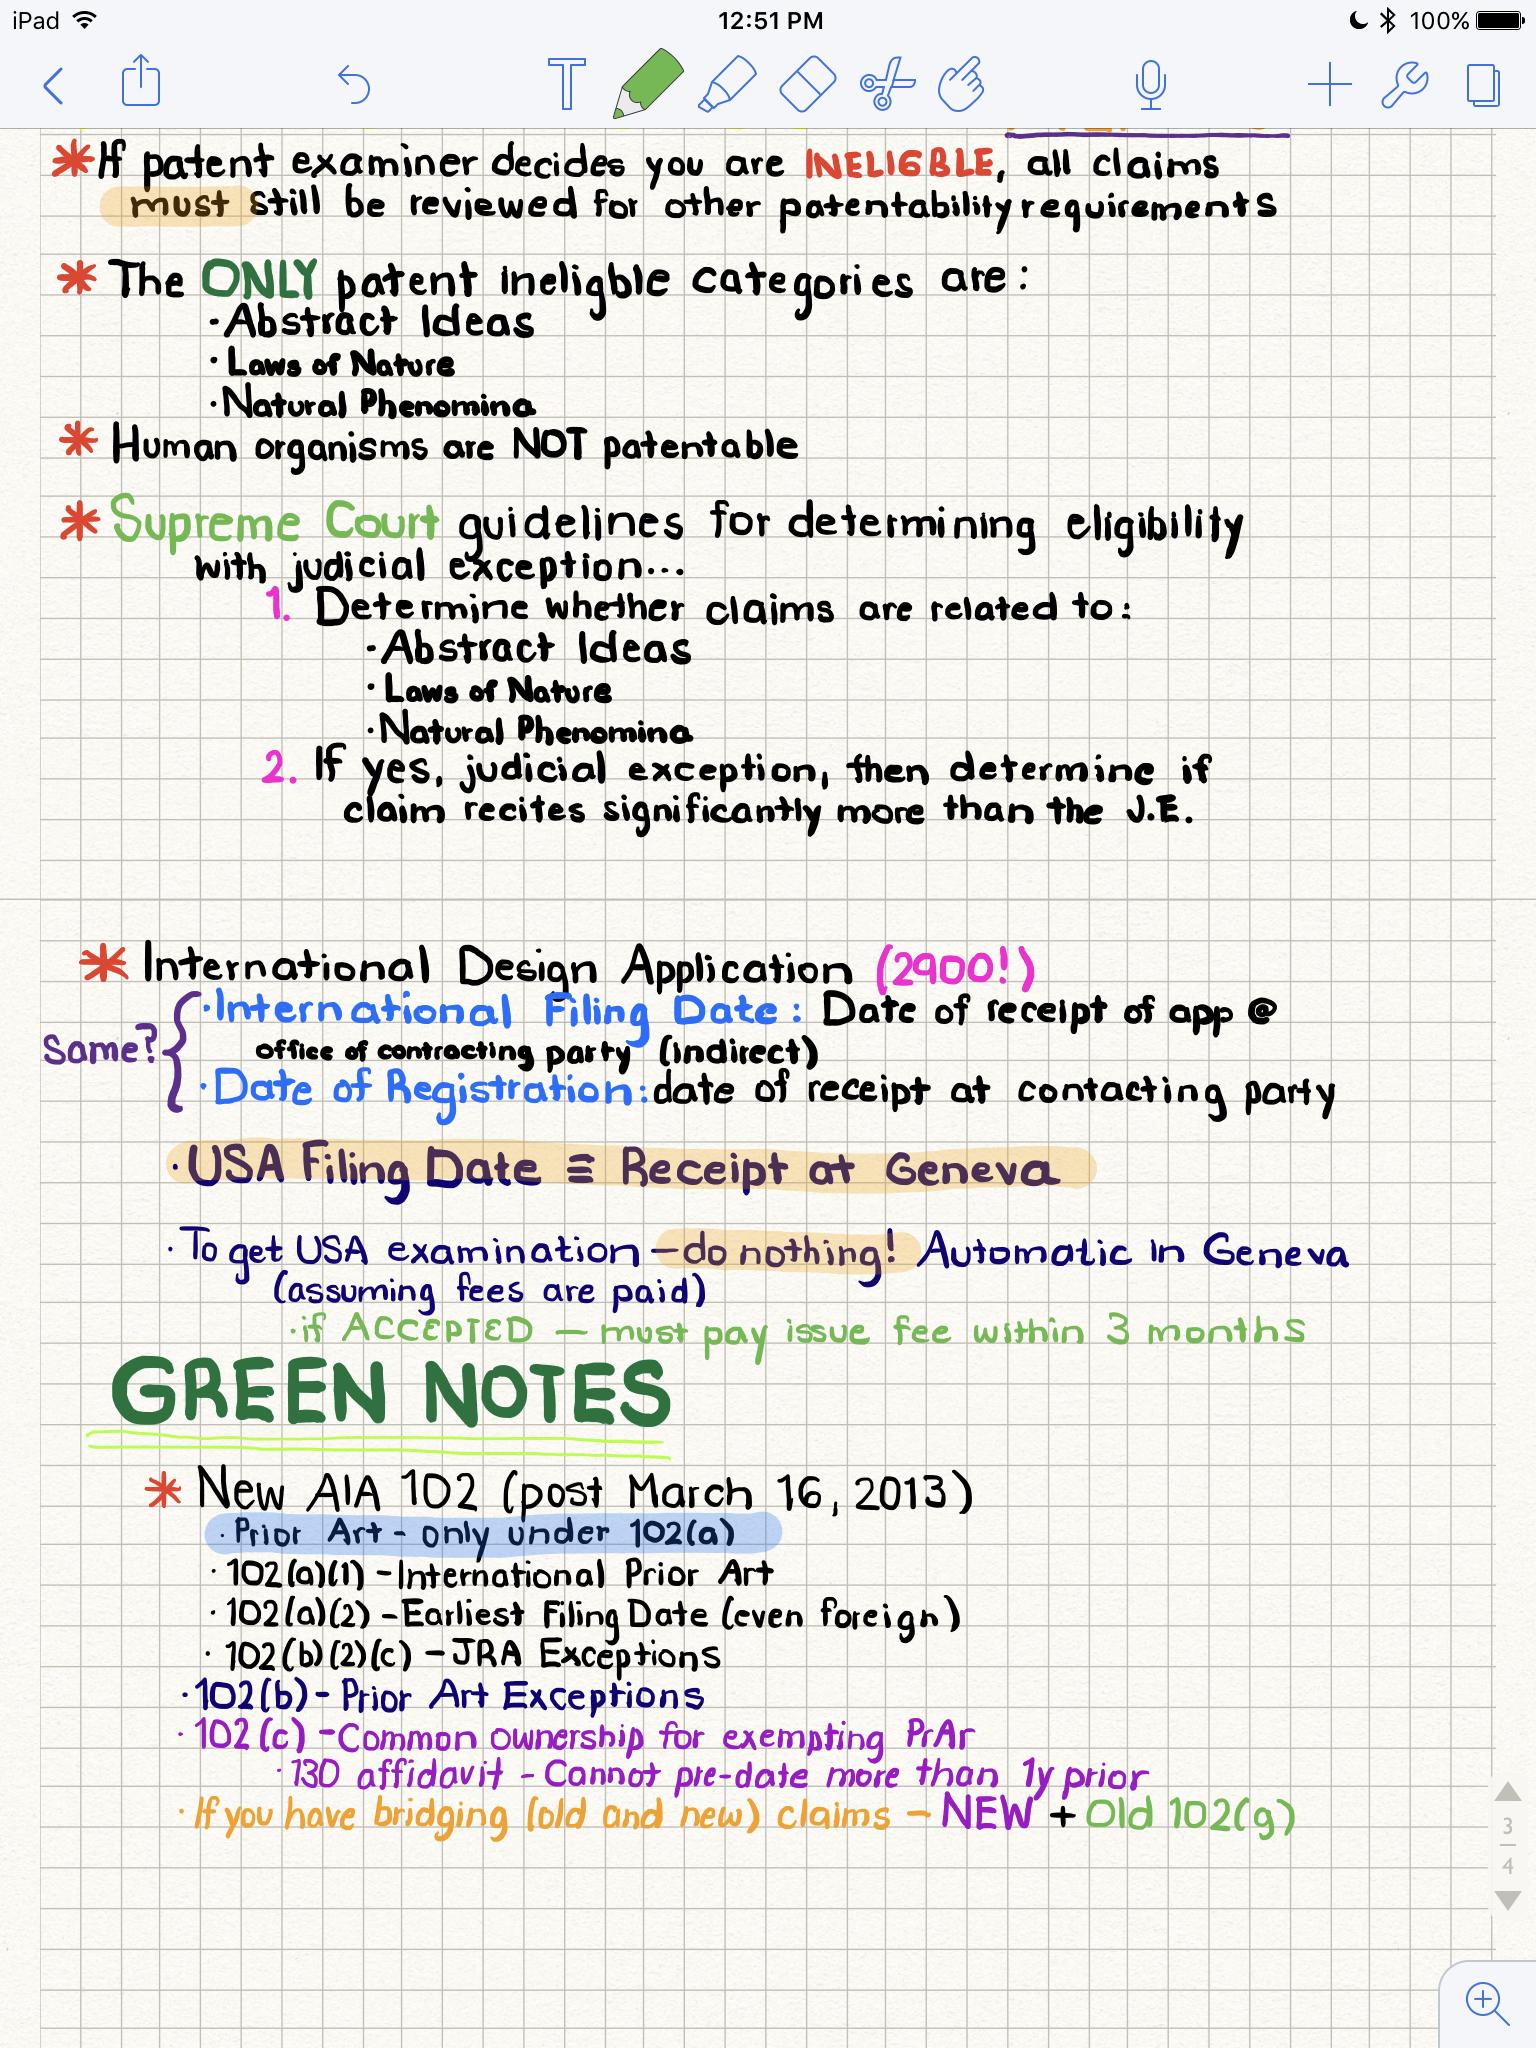 iPad 12:51 PM 100%
*If patent examiner decides you are INELIGBLE, all claims
must still be reviewed for other patentability requirements
* The ONLY patent ineligble categories are:
·Abstract Ideas
·Laws of Nature
·Natural Phenomina
* Human organisms are NOT patentable
* Supreme Court guidelines for determining eligibility
with judicial exception...
1. Determine whether claims are related to:
·Abstract Ideas
·Laws of Nature
·Natural Phenomina
2. If yes, judicial exception, then determine if
claim recites significantly more than the J.E.
* International Design Application (2900!)
·International Filing Date: Date of receipt of app @
Same?{ office of contracting party (indirect)
·Date of Registration: date of receipt at contacting party
·USA Filing Date ≡ Receipt at Geneva
·To get USA examination - do nothing! Automatic in Geneva
(assuming fees are paid)
·if ACCEPTED - must pay issue fee within 3 months
GREEN NOTES
* New AIA 102 (post March 16, 2013)
·Prior Art - only under 102(a)
·102(a)(1) - International Prior Art
·102(a)(2) - Earliest Filing Date (even foreign)
·102(b)(2)(c) - JRA Exceptions
·102(b) - Prior Art Exceptions
·102(c) - Common ownership for exempting PrAr
·130 affidavit - Cannot pre-date more than 1y prior
·If you have bridging (old and new) claims - NEW + Old 102(g)
3
4